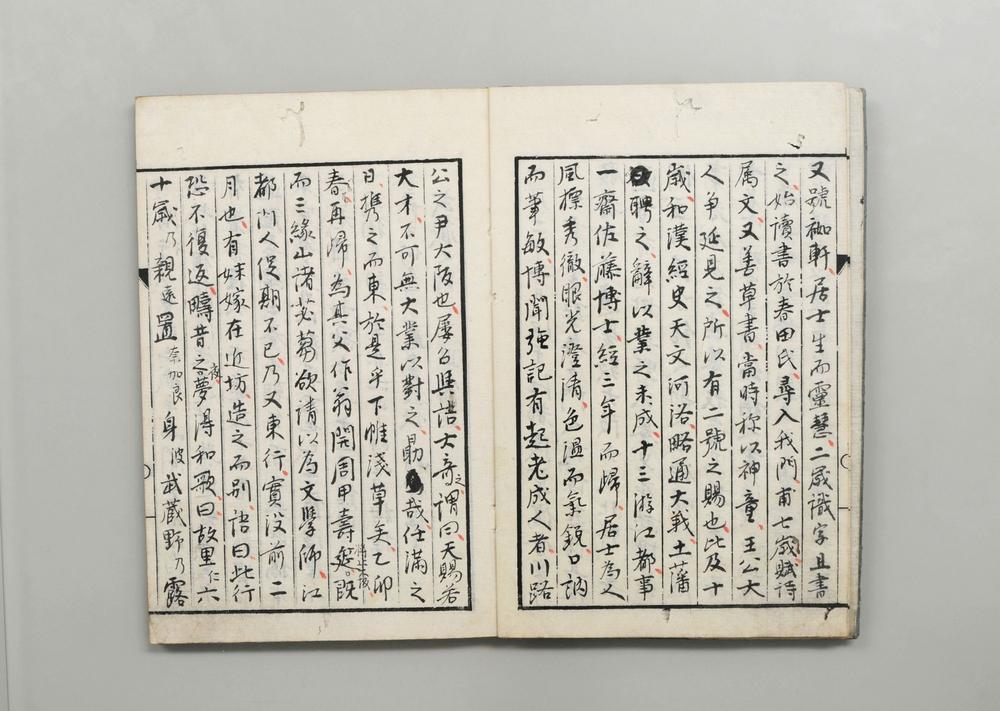 又號袖軒居士生而靈慧二歲識字且書
之始讀書於春田氏尋入我門甫七歲賦詩
属文又善草書當時称以神童王公大
人争延見之所以有二號之賜也比及十
歲和漢經史天文河洛略通大義土藩
聘之辭以業之未成十三游江都事
一齋佐藤博士經三年而歸居士為人
風標秀徹眼光澄清色温而氣鋭口訥
而筆敏博聞強記有起老成人者川路
公之尹大阪也屢召與語大奇之謂曰天賜若
大才不可無大業以對之勗哉任滿之
日携之而東於是乎下帷淺草矣乙卯
春再歸為其父作翁開周甲壽筵既
而三緣山諸苾蒭欲請以為文學師江
都門人促期不已乃又東行實没前二
月也有妹嫁在近坊造之而別語曰此行
恐不復返疇昔之夜夢得和歌曰故里仁六
十歲乃親遠置奈加良身波武蔵野乃露